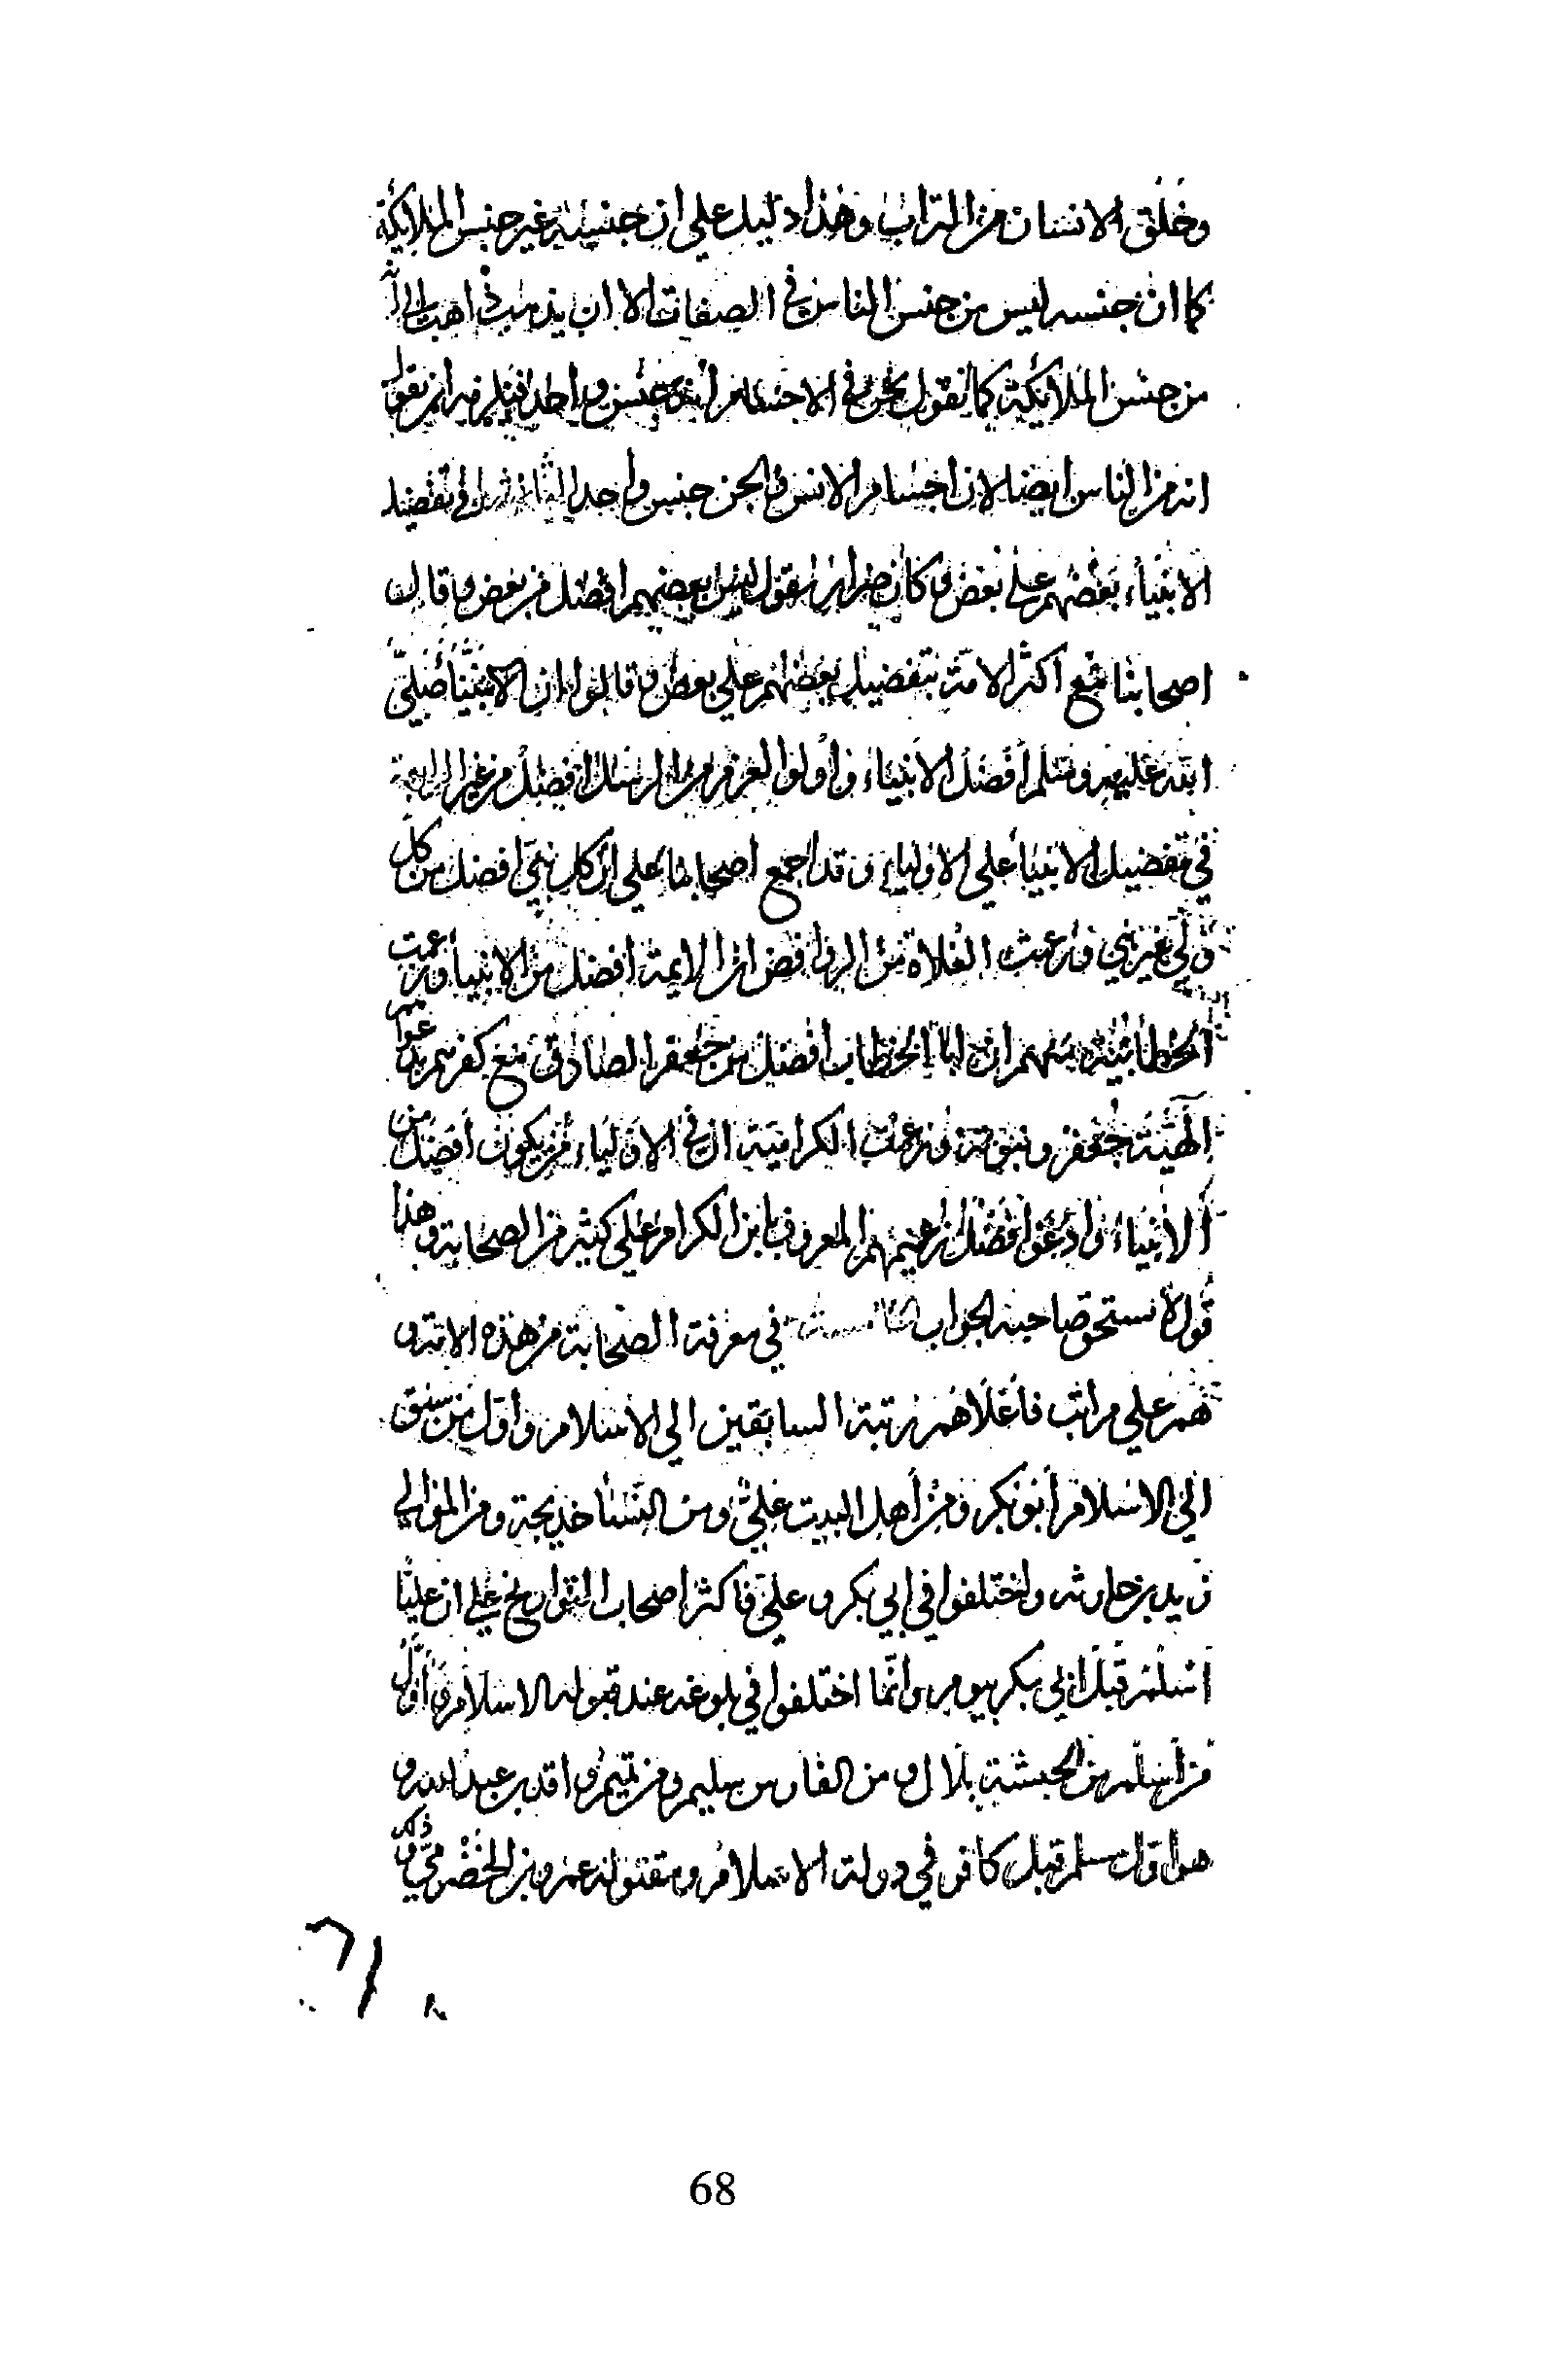 وخلق الانسان من التراب وهذا دليل على ان جنسه غير جنس الملايكة
كما ان جنسه ليس من جنس الناس في الصفات الا ان يذهب ذاهب الى انه
من جنس الملايكة كما نقول نحن في الاجسام انها جنس واحد فيلزمه ان يقول
انه من الناس ايضا لان اجسام الانس والجن جنس واحد في تفضيل
الانبياء بعضهم على بعض وكان ضرار يقول ليس بعضهم افضل من بعض وقال
اصحابنا مع اكثر الامة بتفضيل بعضهم على بعض وقالوا ان نبينا صلى
الله عليه وسلم افضل الانبياء واولوا العزم من الرسل افضل من غيرهم
في تفضيل الانبياء على الاولياء وقد اجمع اصحابنا على ان كل نبي افضل من كل
ولي غير نبي وزعمت الغلاة من الروافض ان الايمة افضل من الانبياء وزعمت
الخطابية منهم ان ابا الخطاب افضل من جعفر الصادق مع كفرهم بدعواهم
الهية جعفر ونبوته وزعمت الكرامية ان في الاولياء من يكون افضل من
الانبياء وادعوا فضل زعيمهم المعروف بابن الكرام على كثير من الصحابة وهذا
قول لا يستحق صاحبه الجواب في معرفة الصحابة من هذه الامة و
هم على مراتب فاعلاهم رتبة السابقين الى الاسلام واول من سبق
الى الاسلام ابو بكر ومن اهل البيت علي ومن النساء خديجة ومن الموالي
زيد بن حارثه واختلفوا في ابي بكر وعلي فاكثر اصحاب التواريخ على ان عليا
اسلم قبل ابي بكر بيوم وانما اختلفوا في بلوغه عند قبوله الاسلام واول
من اسلم من الحبشة بلال ومن الفارس سليم ومن تميم واقد بن عبد الله و
هو اول مسلم قتل كافرا في دولة الاسلام ومقتوله عمرو بن الحضرمي وذلك
68